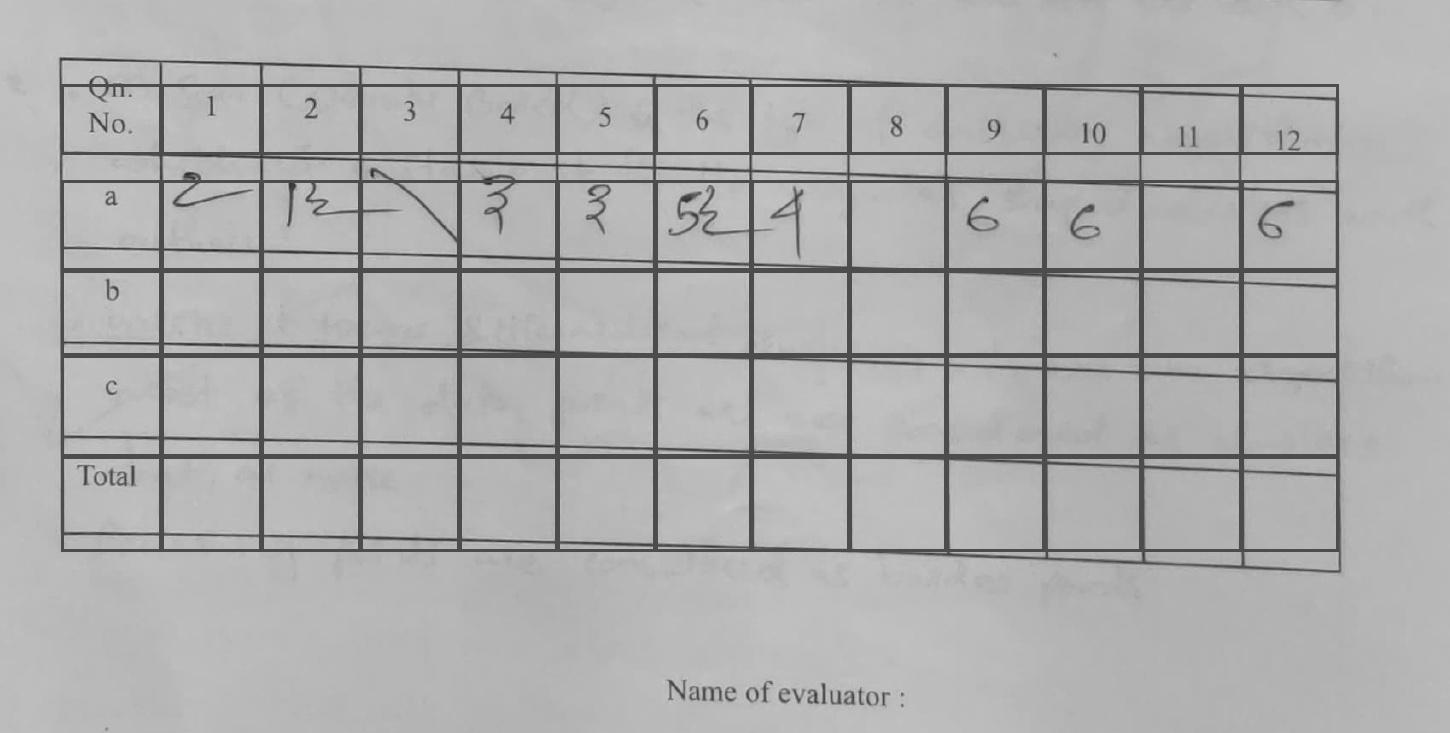 Qn. No. 1 2 3 4 5 6 7 8 9 10 11 12
a 2 1½ \ 3 3 5½ 4 6 6 6
b
c
Total
Name of evaluator :